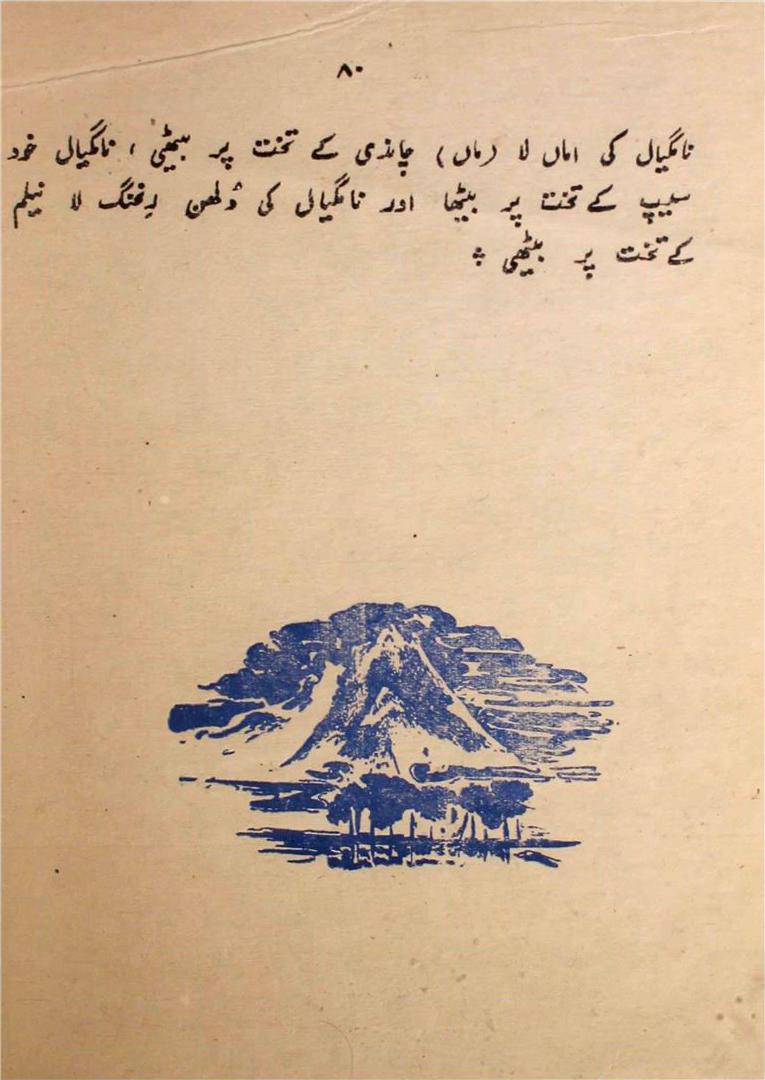 ۸۰
نامگیال کی اماں لا (ماں) چاندی کے تخت پر بیٹھی ، نامگیال خود
سیپ کے تخت پر بیٹھا اور نامگیال کی دُلھن لہنگ لا نیلم
کے تخت پر بیٹھی ؞